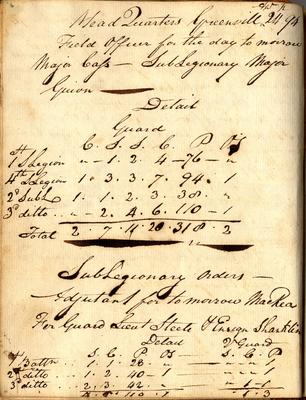 Head Quarters Greenvill, 24 94
Field Officer for the day to morrow
Major Cass — SubLegionary Major
Guion —
Detail
Guard
C. S. S. C. P. Ds
1st S Legion " - 1 - 2. 4 - 76 - "
4th S Legion 1 . 3 . 3 . 7 . 94 . 1
2d Sub L 1 . 1 . 2 . 3 . 38 . "
3d ditto .. " - 2 . 4 . 6 . 110 - 1
Total 2 . 7 . 11 . 20 . 318 . 2
SubLegionary Orders —
Adjutant for to morrow MacRea
For Guard Lieut Steele & Ensign Sharklin
Detail Guard
S. C. P. Ds S. C. P
Battn .. 1 . 1 . 28
2d ditto .. 1 . 2 . 40 - 1 " " 1
3d ditto .. 2 . 3 . 42 " " 1 - 1
4 . 6 . 110 . 1 1 . 3